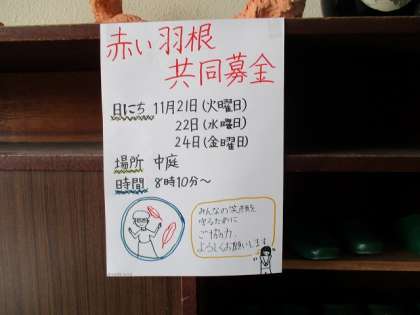 赤い羽根
共同募金
日にち 11月21日(火曜日)
22日(水曜日)
24日(金曜日)
場所 中庭
時間 8時10分～
みんなの笑顔を
守るために
ご協力
よろしくお願いします